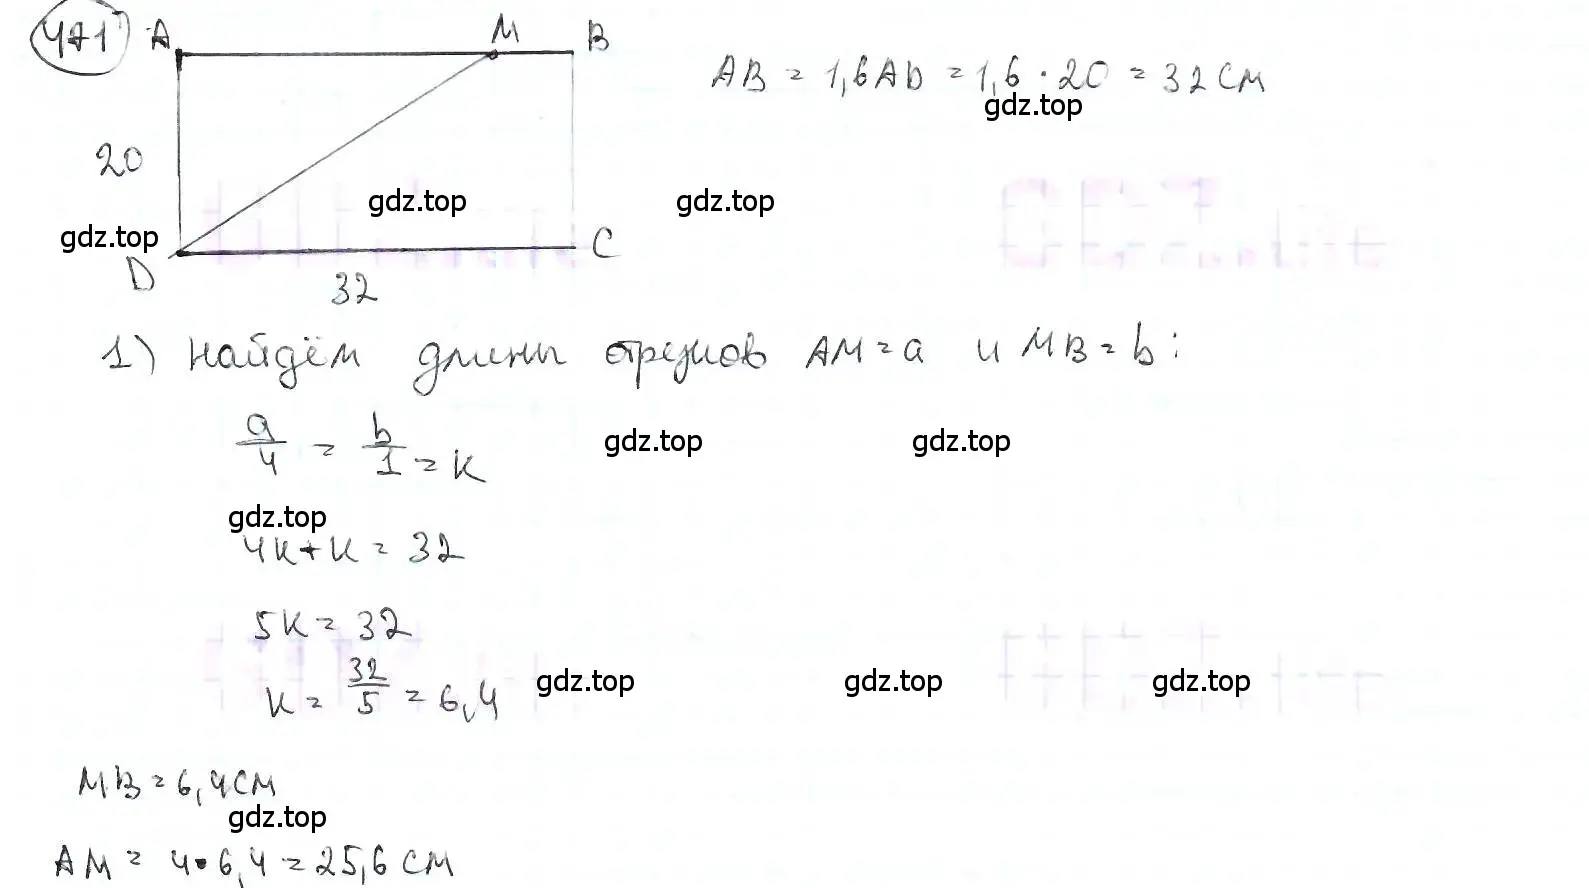 471 A M B
AB = 1,6AD = 1,6 · 20 = 32 см
gdz.top
20
gdz.top gdz.top
gdz.top
C
D
32
1) найдём длины отрезков AM = a и MB = b:
a/4 = b/1 = k
gdz.top gdz.top
gdz.top
4k + k = 32
5k = 32
k = 32/5 = 6,4
gdz.top gdz.top gdz.top
MB = 6,4 см
gdz.top
AM = 4 · 6,4 = 25,6 см